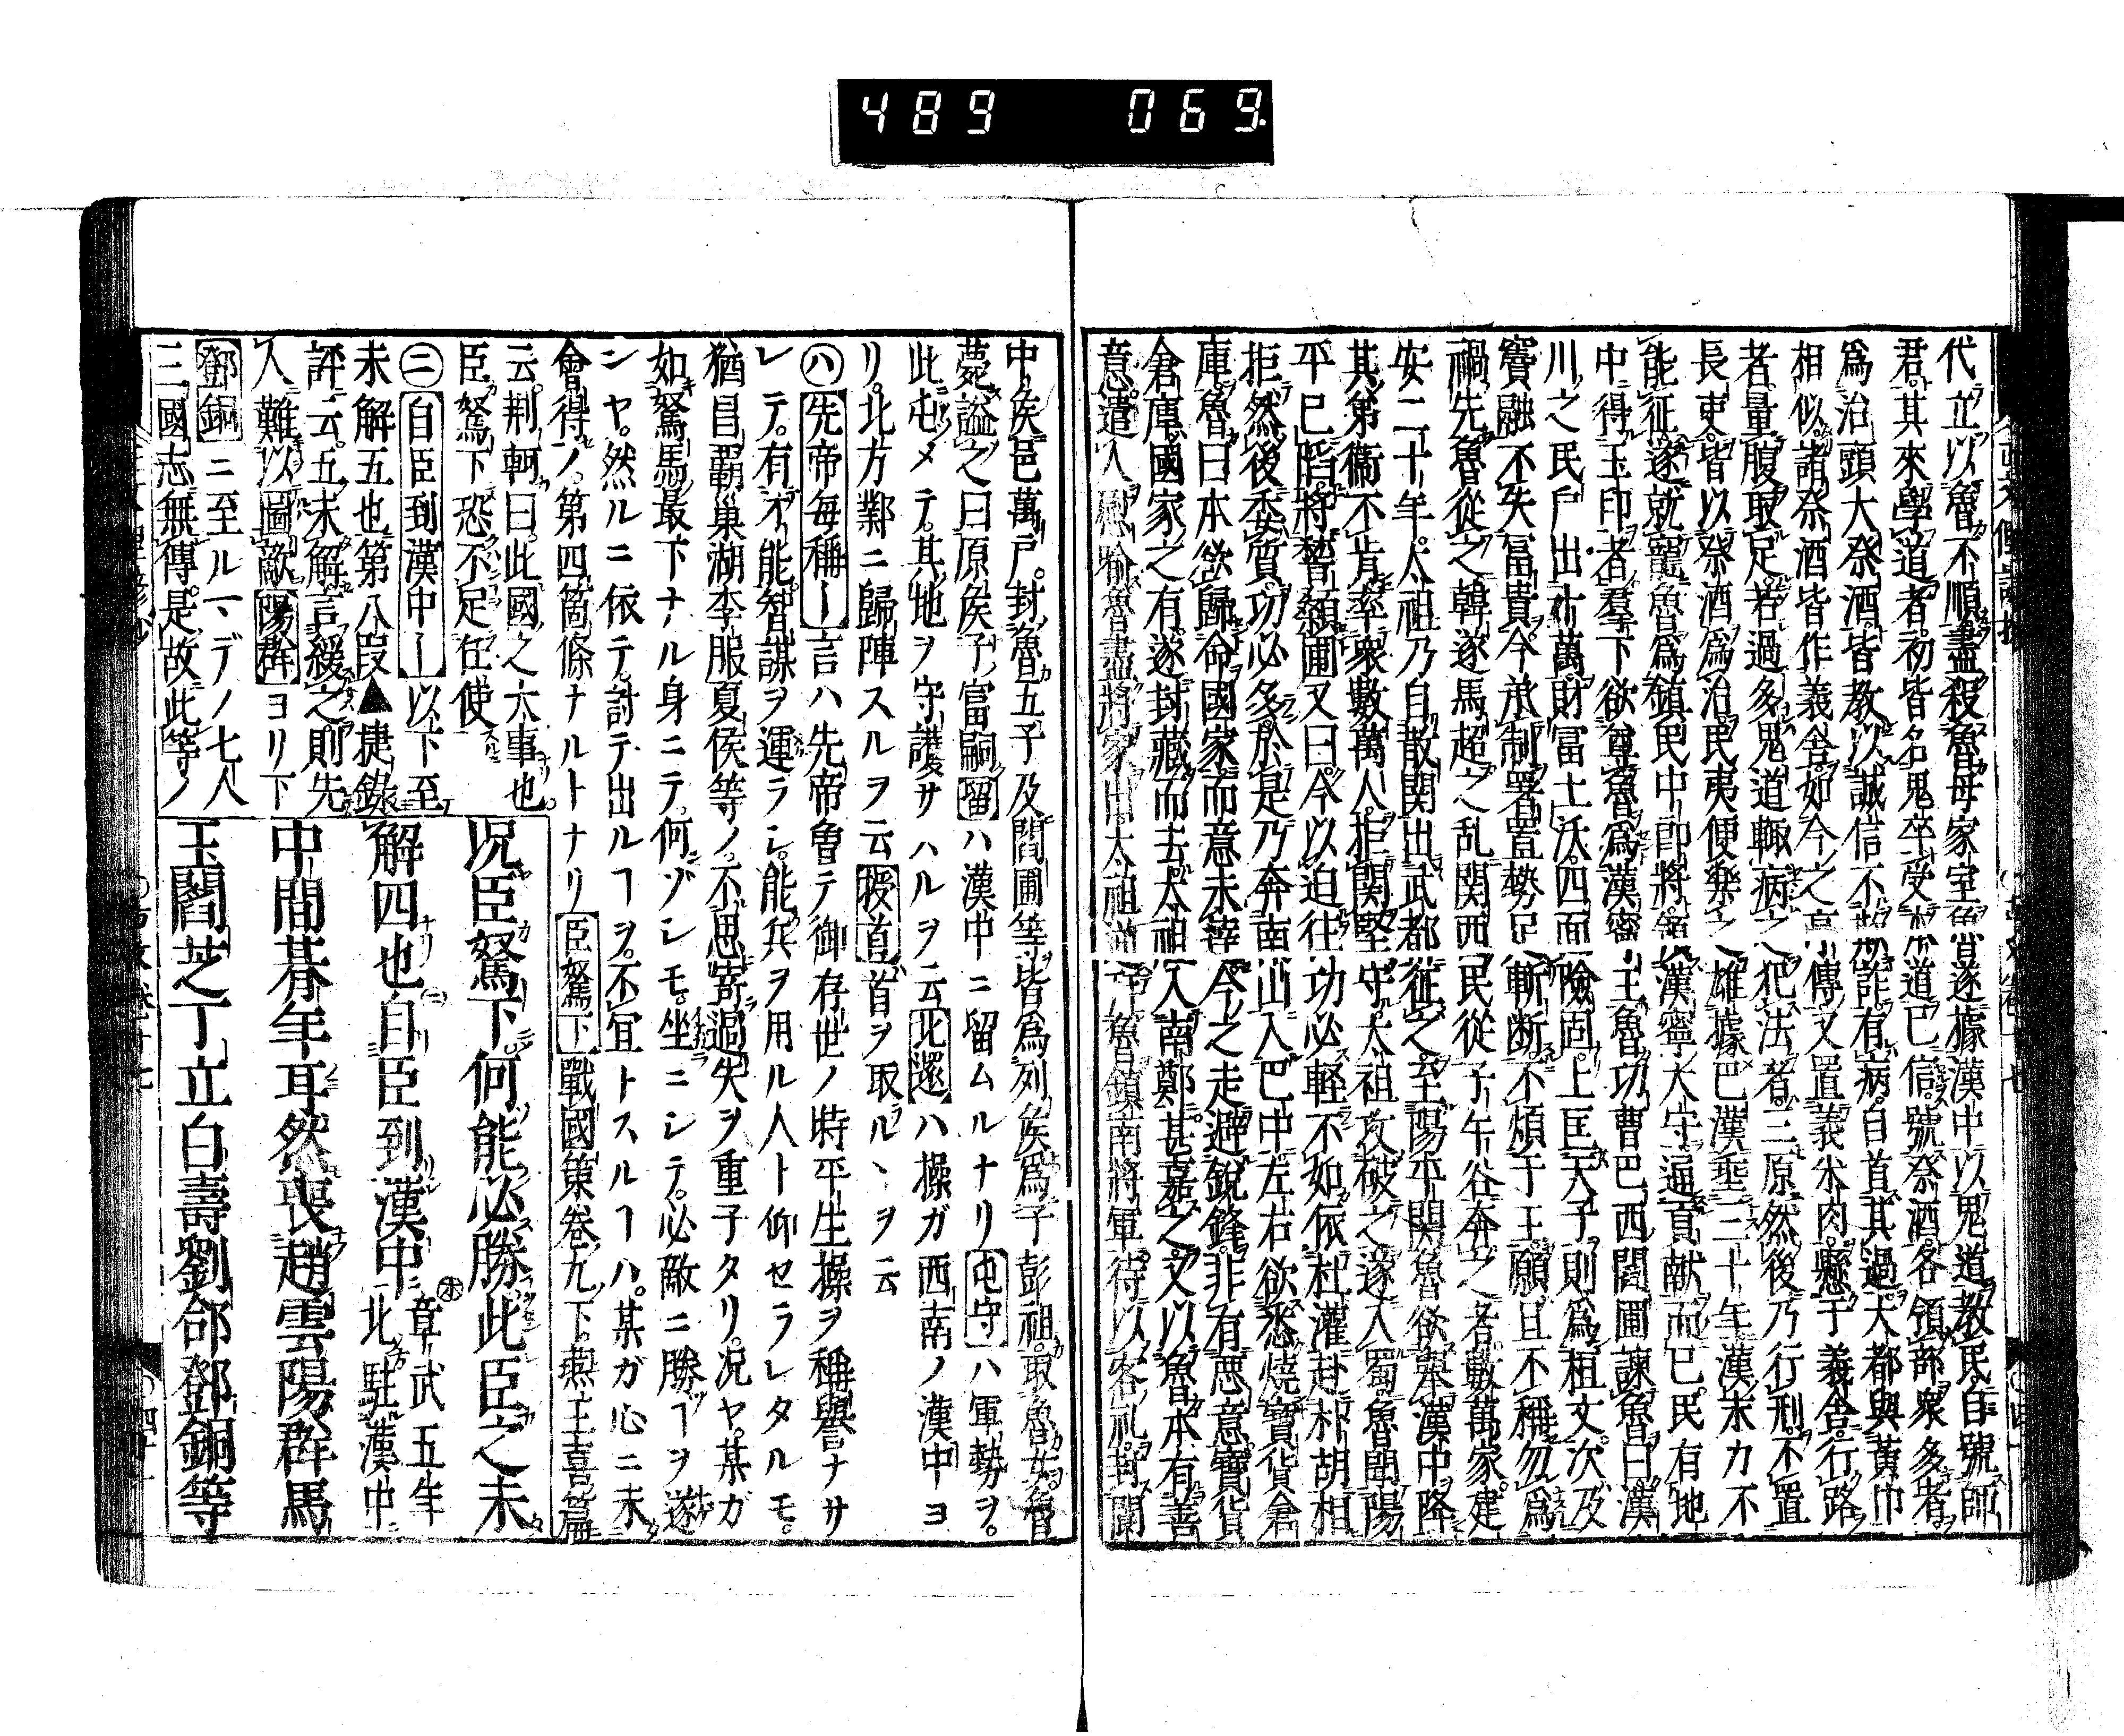 489 069.
代立以魯不順盡殺魯母家室魯遂據漢中以鬼道教民自號師
君其來學道者初皆名鬼卒受本道已信號祭酒各領部衆多者
爲治頭大祭酒皆教以誠信不欺詐有病自首其過大都與黃巾
相似諸祭酒皆作義舍如今之亭傳又置義米肉縣于義舍行路
者量腹取足若過多鬼道輙病之犯法者三原然後乃行刑不置
長吏皆以祭酒爲治民夷便樂之雄據巴漢垂三十年漢末力不
能征遂就寵魯爲鎮民中郎將領漢寧大守通貢献而已民有地
中得玉印者羣下欲尊魯爲漢寧王魯功曹巴西閻圃諫魯曰漢
川之民戶出十萬財富土沃四面險固上匡天子則爲桓文次及
竇融不失冨貴今承制署置勢足斬断不煩于王願且不稱勿爲
禍先魯從之韓遂馬超之乱関西民從子午谷奔之者數萬家建
安二十年太祖乃自散関出武都征之至陽平関魯欲舉漢中降
其弟衞不肯率衆數萬人拒関堅守太祖攻破之遂入蜀魯聞陽
平已陷將稽顙圃又曰今以迫往功必軽不如依杜濩赴朴胡相
拒然後委質功必多於是乃奔南山入巴中左右欲悉燒寶貨倉
庫魯曰本欲歸命國家而意未達今之走避銳鋒非有悪意寶貨
倉庫國家之有遂封藏而去太祖入南鄭甚嘉之又以魯本有善
意遣人慰喻魯盡將家出太祖逆魯鎮南將軍待以客礼封閬
中侯邑萬戸封魯五子及閻圃等皆爲列侯爲子彭祖取魯女魯
薨謚之曰原侯子富嗣留ハ漢中ニ留ムルナリ屯守ハ軍勢ヲ
此屯メテ其地ヲ守護サハルヲ云北還ハ操ガ西南ノ漢中ヨ
リ北方鄴ニ歸陣スルヲ云授首首ヲ取ルヽヲ云
ハ先帝毎稱ー言ハ先帝魯テ御存世ノ時平生操ヲ稱譽ナサ
レテ有才能智謀ヲ運ラシ能兵ヲ用ル人ト仰セラレタルモ
猶昌覇巣湖李服夏侯等ノ不思寄過失ヲ重子タリ况ヤ某ガ
如駑馬最下ナル身ニテ何ゾシモ坐ニシテ必敵ニ勝ヿヲ遂
ンヤ然ルニ依テ討テ出ルヿヲ不宜トスルヿハ某ガ心ニ未
會得ノ第四箇條ナルトナリ臣駑下戰國策卷九下燕王喜篇
云荆軻曰此國之大事也
臣駑下恐不足任使
况臣駑下何能必勝此臣之未
解四也自臣到漢中章武五年北駐漢中
中間朞年耳然喪趙雲陽群馬
玉閻芝丁立白壽劉郃鄧銅等
ニ自臣到漢中ー以下至
未解五也第八段▲捷錄
評云五未解言緩之則先
入難以圖敵陽群ヨリ下
鄧銅ニ至ルマデノ七人
三國志無傳是故此等ノ